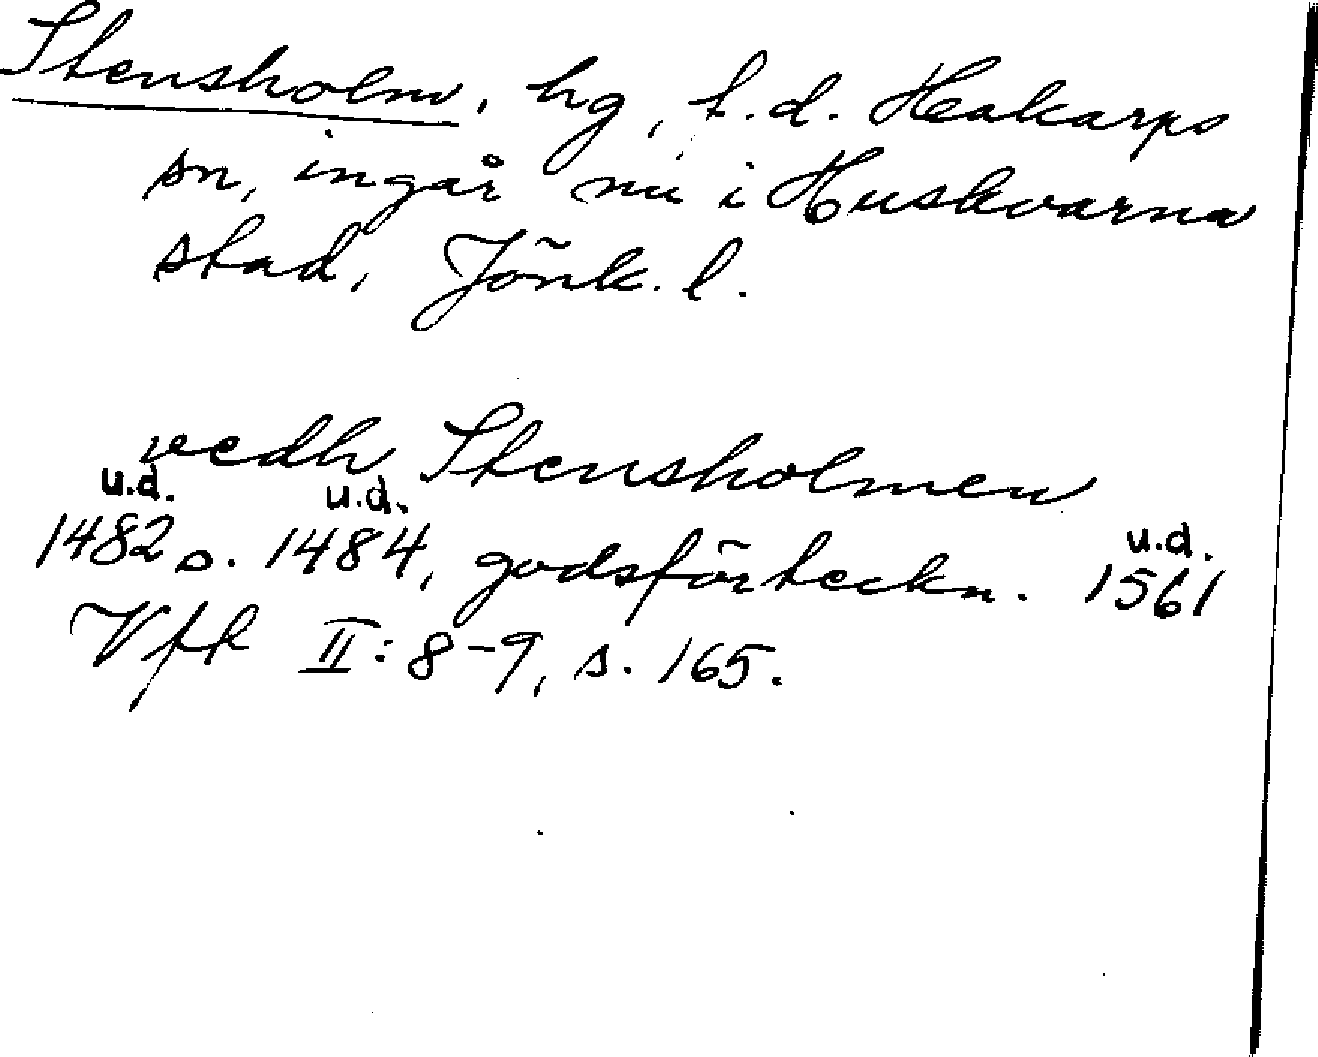 Stensholm, hg, f.d. Hakarps
sn, ingår nu i Huskvarna
stad, Jönk. l.
vedh Stensholmen
u.d. u.d. u.d.
1482 o. 1484, godsförteckn. 1561
Vff II: 8-9, s. 165.